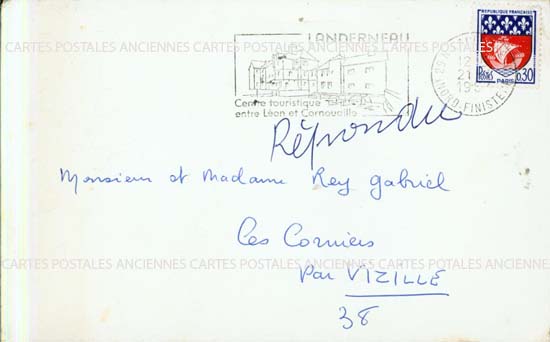 LANDERNEAU
Centre touristique
entre Léon et Cornouaille
RÉPUBLIQUE FRANÇAISE
POSTES 0,30
PARIS
29
12
21
19
NORD-FINISTE
Répondu
Monsieur et Madame Rey Gabriel
Les Corniers
Par VIZILLE
38
CARTES POSTALES ANCIENNES CARTES POSTALES ANCIENNES CARTES POSTALES ANCIENNES
CARTES POSTALES ANCIENNES CARTES POSTALES ANCIENNES CARTES POSTALES ANCIENNES